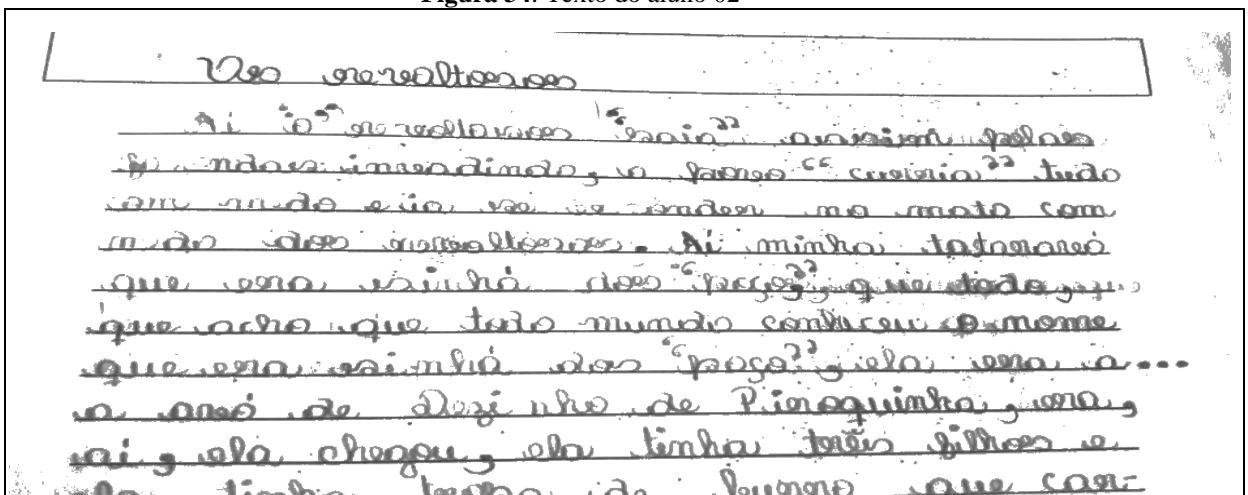 Figura 34: Texto do aluno 02
revoltosos
Ai "o" revoltosos "saia" assim pelas
invadindo, o povo tudo
com medo e ia se no mato com
medo dos revoltosos. Ai minha tataravó
que era sinhá dos "poço", que todo, que
que acho que todo mundo conheceu o nome
que era sinhá dos "poço", ela era a...
a avó de de era,
ai, ela chegou, ela tinha três filhos e
ela tinha de burro que car-